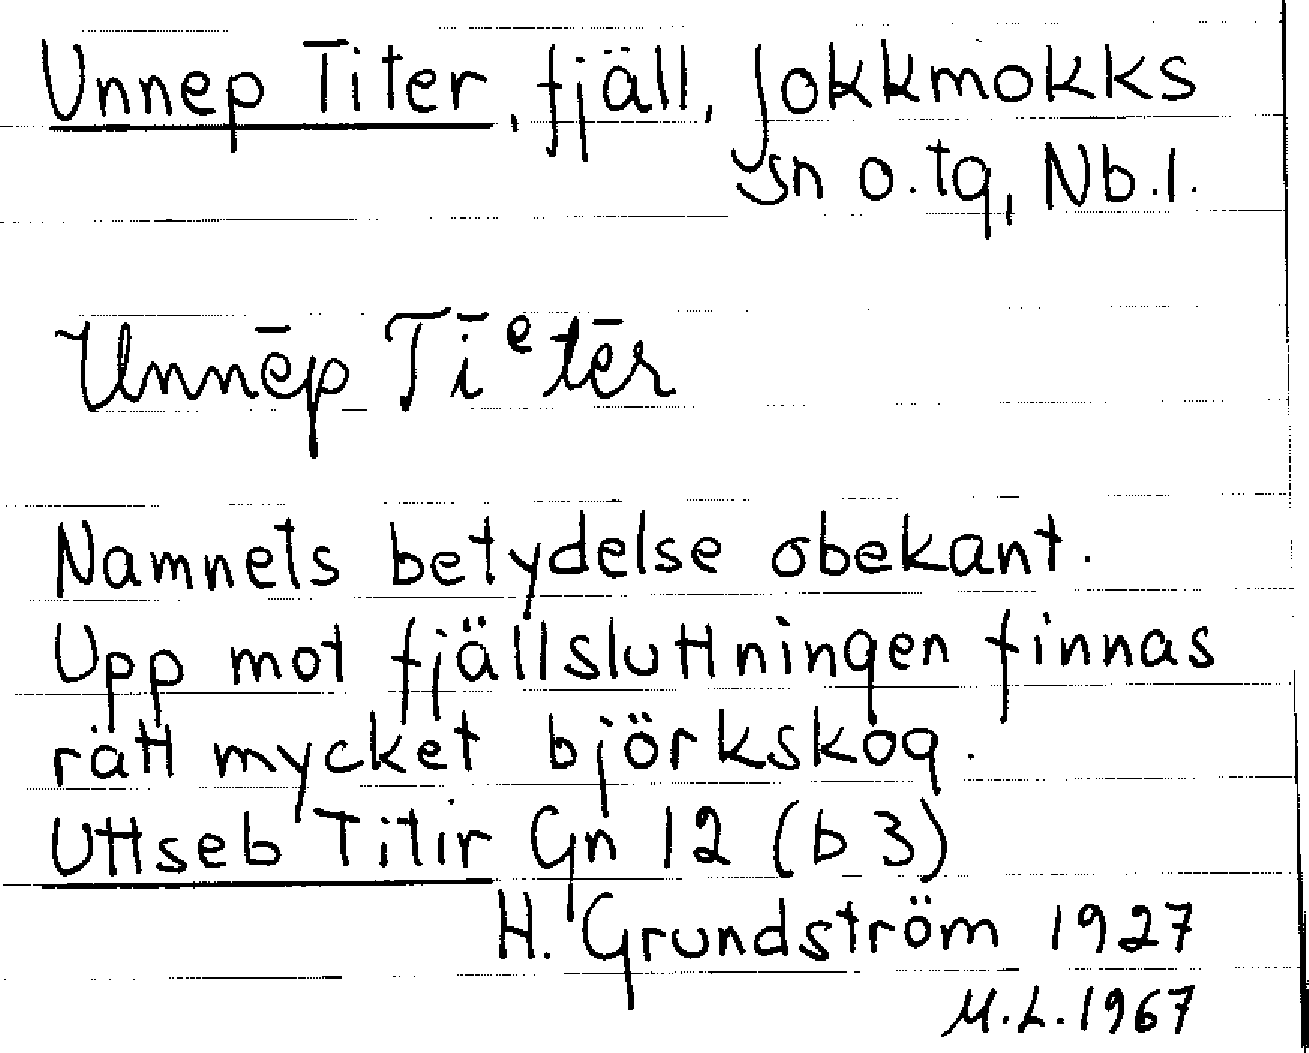 Unnep Titer, fjäll, Jokkmokks
sn o. tg, Nb.l.
Unnēp Tīᵉtēr
Namnets betydelse obekant.
Upp mot fjällsluttningen finnas
rätt mycket björkskog.
Uttseb Titir Gn 12 (b 3)
H. Grundström 1927
M.L. 1967